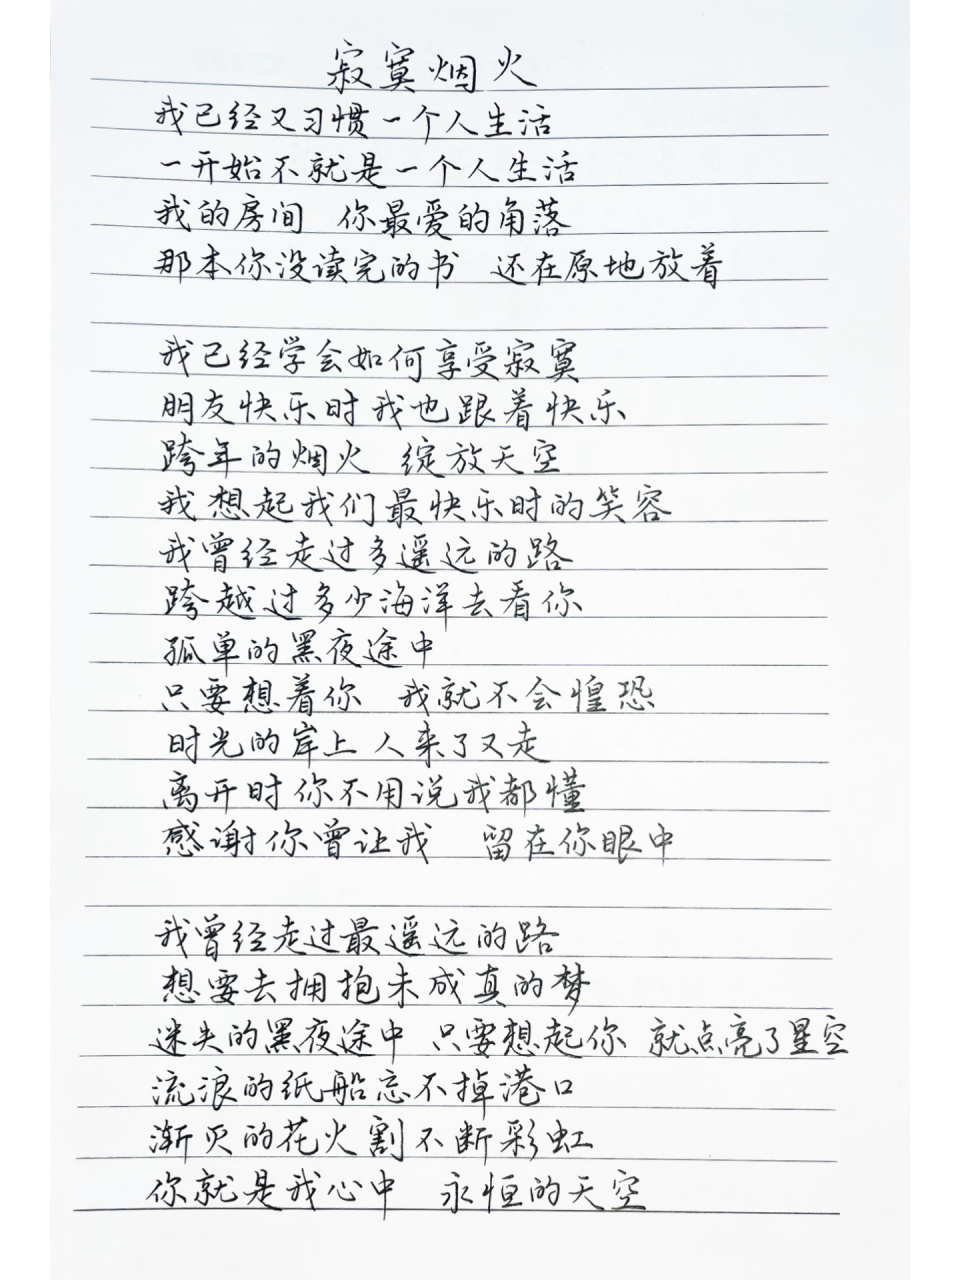 寂寞烟火
我已经又习惯一个人生活
一开始不就是一个人生活
我的房间 你最爱的角落
那本你没读完的书 还在原地放着
我已经学会如何享受寂寞
朋友快乐时我也跟着快乐
跨年的烟火 绽放天空
我想起我们最快乐时的笑容
我曾经走过多遥远的路
跨越过多少海洋去看你
孤单的黑夜途中
只要想着你 我就不会惶恐
时光的岸上 人来了又走
离开时你不用说我都懂
感谢你曾让我 留在你眼中
我曾经走过最遥远的路
想要去拥抱未成真的梦
迷失的黑夜途中 只要想起你 就点亮了星空
流浪的纸船忘不掉港口
渐灭的花火割不断彩虹
你就是我心中 永恒的天空